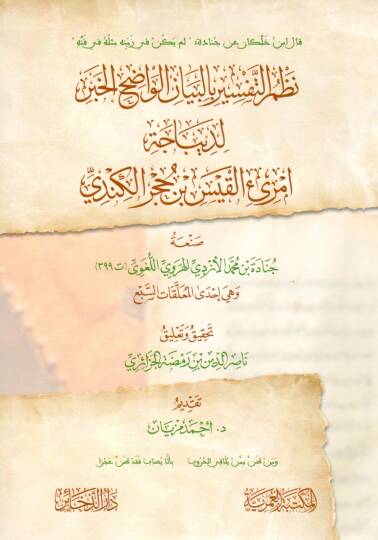 قال ابن خلكان عن جنادة: "لم يكن في زمنه مثله في فنه"
نظم التفسير بالبيان الواضح الخبر
لديباجة
امرئ القيس بن حجر الكندي
صنعة
جنادة بن محمد الأزدي الهروي اللغوي (ت ٣٩٩)
وهي إحدى المعلقات السبع
تحقيق وتعليق
ناصر الدين بن رمضة الجزائري
تقديم
د. أحمد مزيان
المكتبة العمرية
دار الذخائر